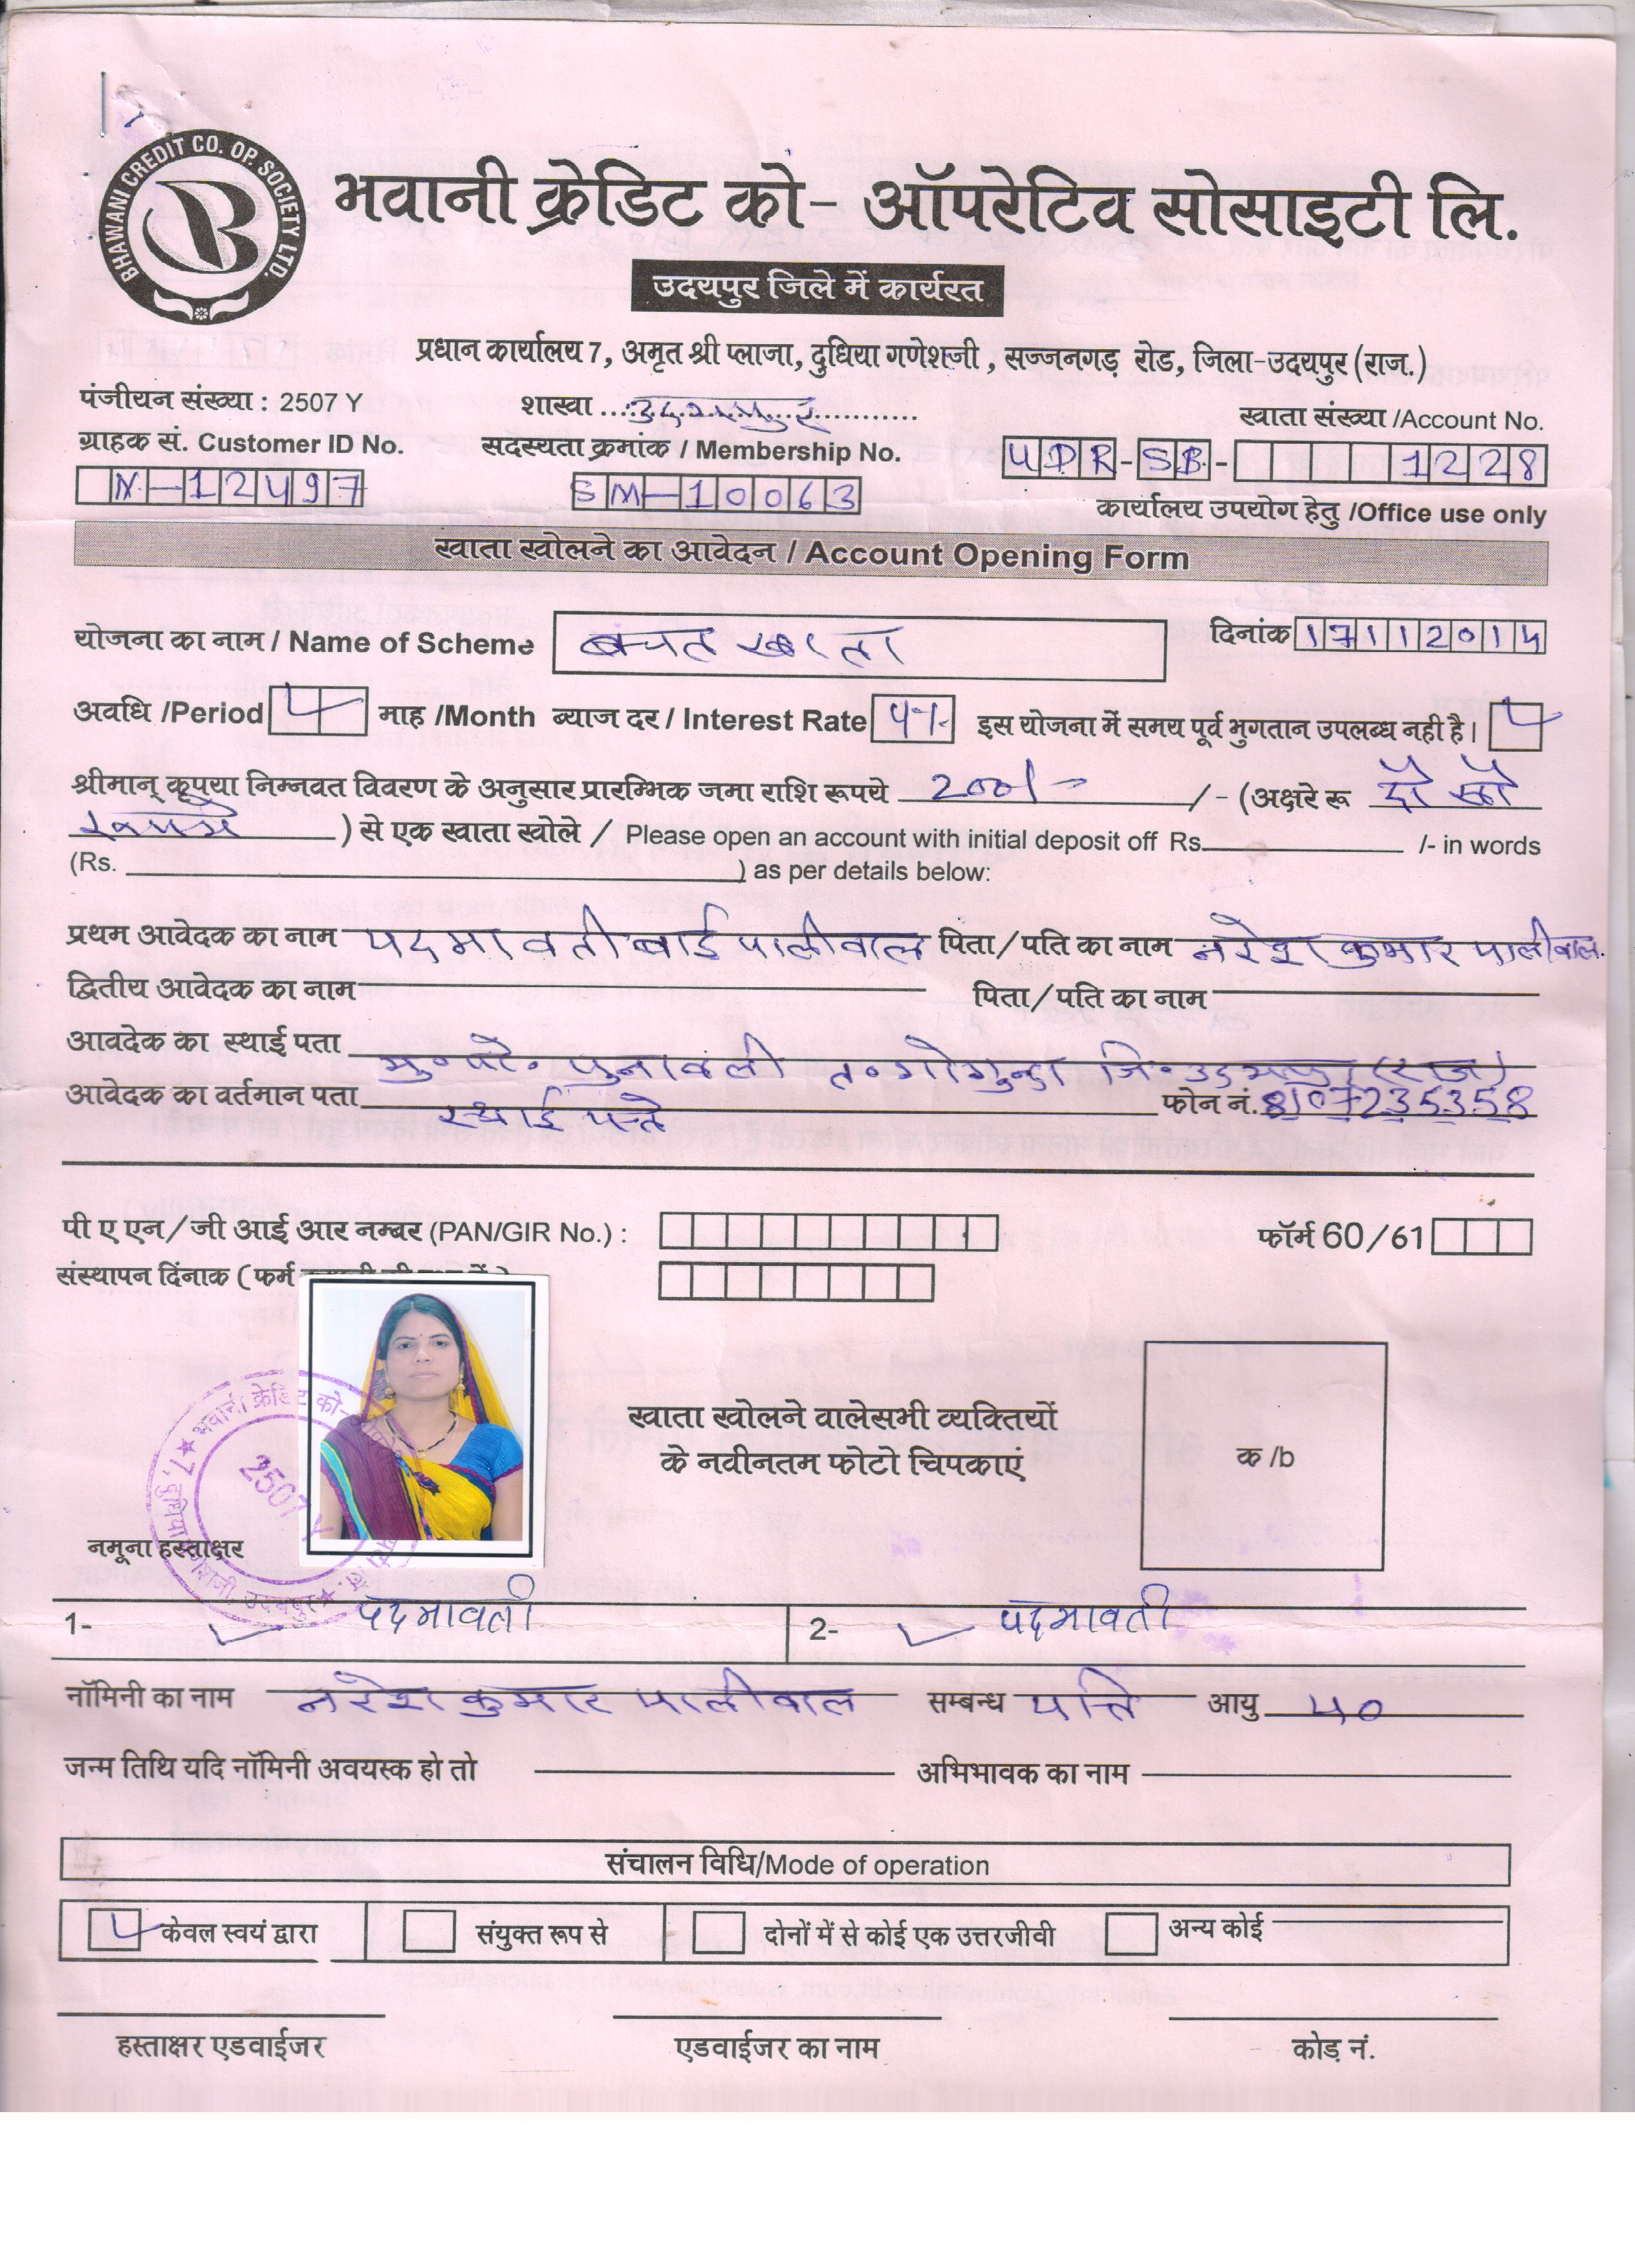 BHAWANI CREDIT CO. OP. SOCIETY LTD.
भवानी क्रेडिट को- ऑपरेटिव सोसाइटी लि.
उदयपुर जिले में कार्यरत
प्रधान कार्यालय 7, अमृत श्री प्लाजा, दुधिया गणेशजी , सज्जनगड़ रोड, जिला-उदयपुर (राज.)
पंजीयन संख्या : 2507 Y शाखा ....उदयपुर............
खाता संख्या /Account No.
ग्राहक सं. Customer ID No. सदस्यता क्रमांक / Membership No.
UDR-SB-1228
N-12497 SM-10063
कार्यालय उपयोग हेतु /Office use only
खाता खोलने का आवेदन / Account Opening Form
योजना का नाम / Name of Scheme बचत खाता दिनांक 17112014
अवधि /Period माह /Month ब्याज दर / Interest Rate 4% इस योजना में समय पूर्व भुगतान उपलब्ध नही है।
श्रीमान् कृपया निम्नवत विवरण के अनुसार प्रारम्भिक जमा राशि रूपये 200/- /- (अक्षरे रू दो सौ
रूपये ) से एक खाता खोले / Please open an account with initial deposit off Rs. /- in words
(Rs. ) as per details below:
प्रथम आवेदक का नाम पदमावती बाई पालीवाल पिता/पति का नाम नरेश कुमार पालीवाल.
द्वितीय आवेदक का नाम पिता/पति का नाम
आवदेक का स्थाई पता मु॰ पो॰ पुनावली त॰ गोगुन्दा जि॰ उदयपुर (राज)
आवेदक का वर्तमान पता स्थाई पत्ते फोन नं. 8107235358
पी ए एन/जी आई आर नम्बर (PAN/GIR No.) : फॉर्म 60/61
संस्थापन दिंनाक ( फर्म
खाता खोलने वालेसभी व्यक्तियों
के नवीनतम फोटो चिपकाएं
क /b
2507 Y
नमूना हस्ताक्षर
1- पदमावती 2- पदमावती
नॉमिनी का नाम नरेश कुमार पालीवाल सम्बन्ध पत्ति आयु 40
जन्म तिथि यदि नॉमिनी अवयस्क हो तो अभिभावक का नाम
संचालन विधि/Mode of operation
केवल स्वयं द्वारा संयुक्त रूप से दोनों में से कोई एक उत्तरजीवी अन्य कोई
हस्ताक्षर एडवाईजर एडवाईजर का नाम कोड़ नं.